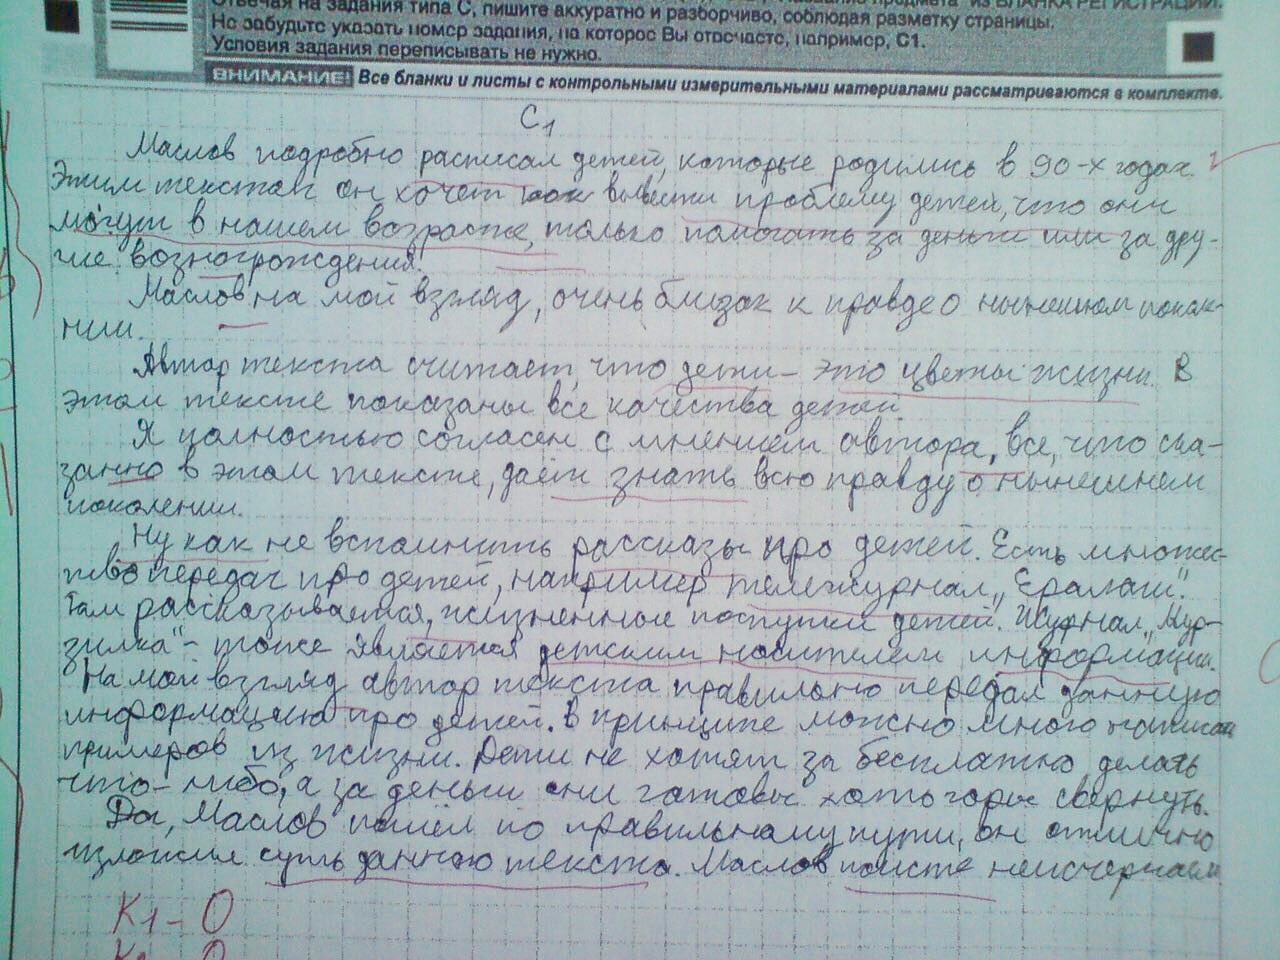 Отвечая на задания типа С, пишите аккуратно и разборчиво, соблюдая разметку страницы.
Не забудьте указать номер задания, на которое Вы отвечаете, например, С1.
Условия задания переписывать не нужно.
ВНИМАНИЕ! Все бланки и листы с контрольными измерительными материалами рассматриваются в комплекте.
С1
Маслов подробно расписал детей, которые родились в 90-х годах.
Этим текстом он хочет вывести проблему детей, что они
могут в нашем возрасте, только помогать за деньги или за дру-
гие возногрождения.
Маслов на мой взгляд, очень близок к правде о нынешнем
нии.
Автор текста считает, что дети – это цветы жизни. В
этом тексте показаны все качества детей
Я полностью согласен с мнением автора, все, что ска-
занно в этом тексте, даёт знать всю правду о нынешнем
поколении.
Ну как не вспомнить рассказы про детей. Есть множес-
тво передач про детей, например тележурнал „Ералаш".
Там рассказывается, жизненные поступки детей. Журнал „Мур-
зилка" – тоже является детским носителем информации.
На мой взгляд автор текста правильно передал данную
информацию про детей. В принципе можно много
примеров из жизни. Дети не хотят за бесплатно делать
что-либо, а за деньги они готовы хоть горы свернуть.
Да, Маслов пошёл по правильному пути, он отлично
изложил суть данного текста. Маслов поисте неисчерпаем
К1 – 0